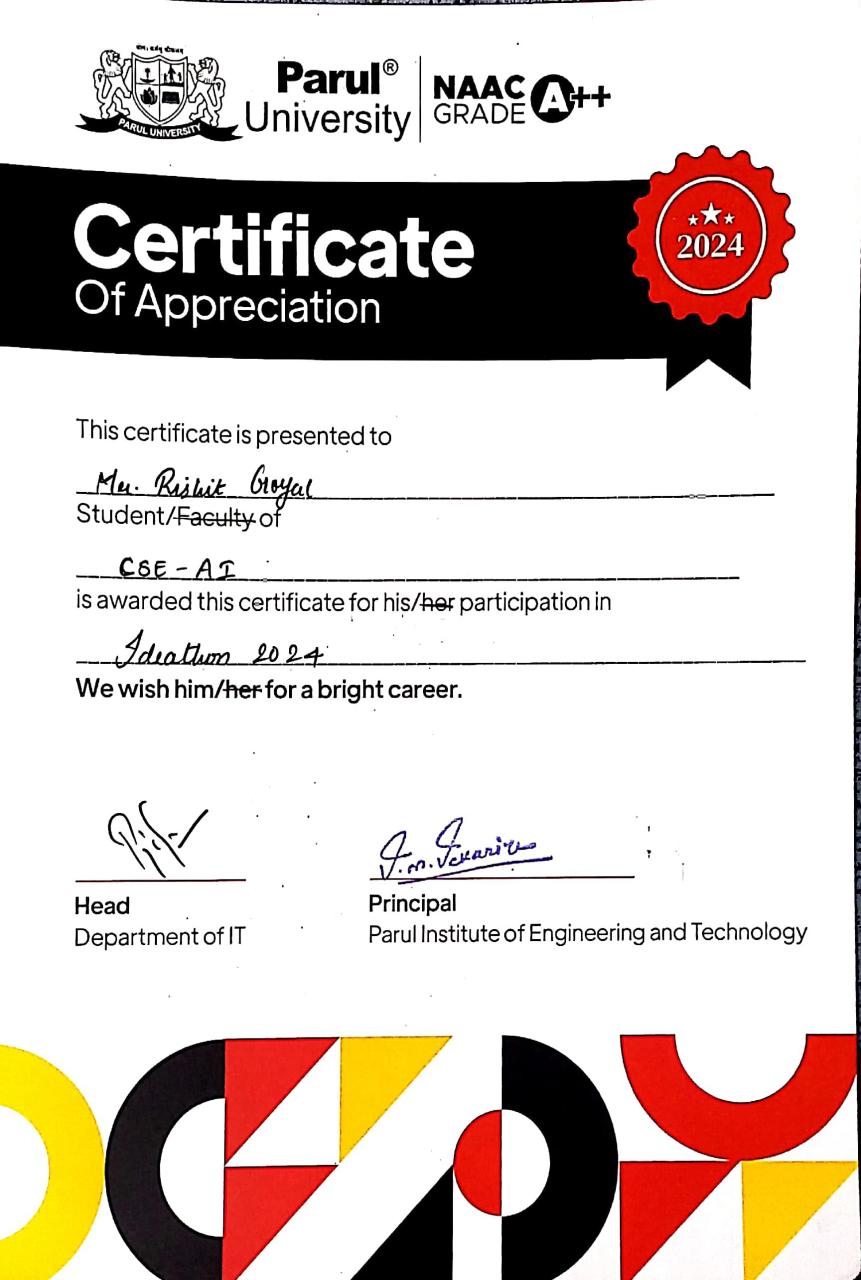 PARUL UNIVERSITY
Parul®
University
NAAC
GRADE A++
Certificate
Of Appreciation
2024
This certificate is presented to
Mr. Rishit Goyal
Student/Faculty of
CSE - AI
is awarded this certificate for his/her participation in
Ideathon 2024
We wish him/her for a bright career.
Head
Department of IT
Principal
Parul Institute of Engineering and Technology